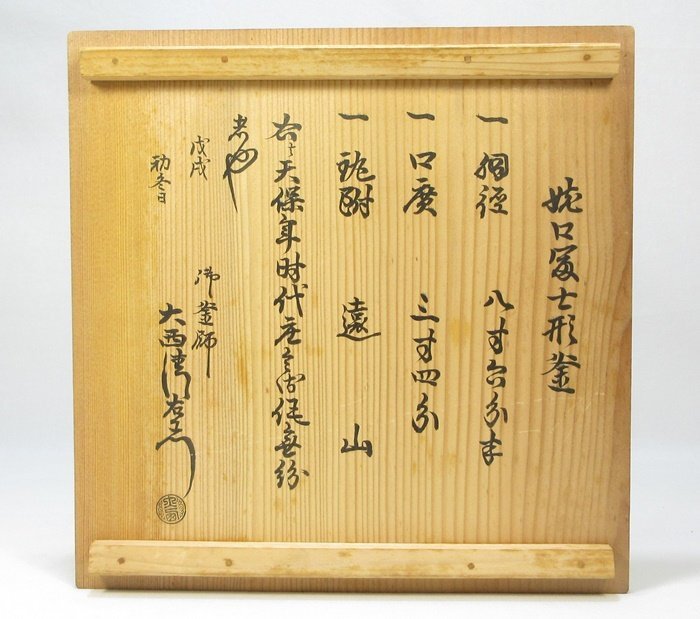 姥口富士形釜
一 胴径 八寸六分半
一 口廣 三寸四分
一 鐶附 遠山
右ハ天保年时代 無紛
者也
戊戌
初冬日
御釜師
大西清右衛門